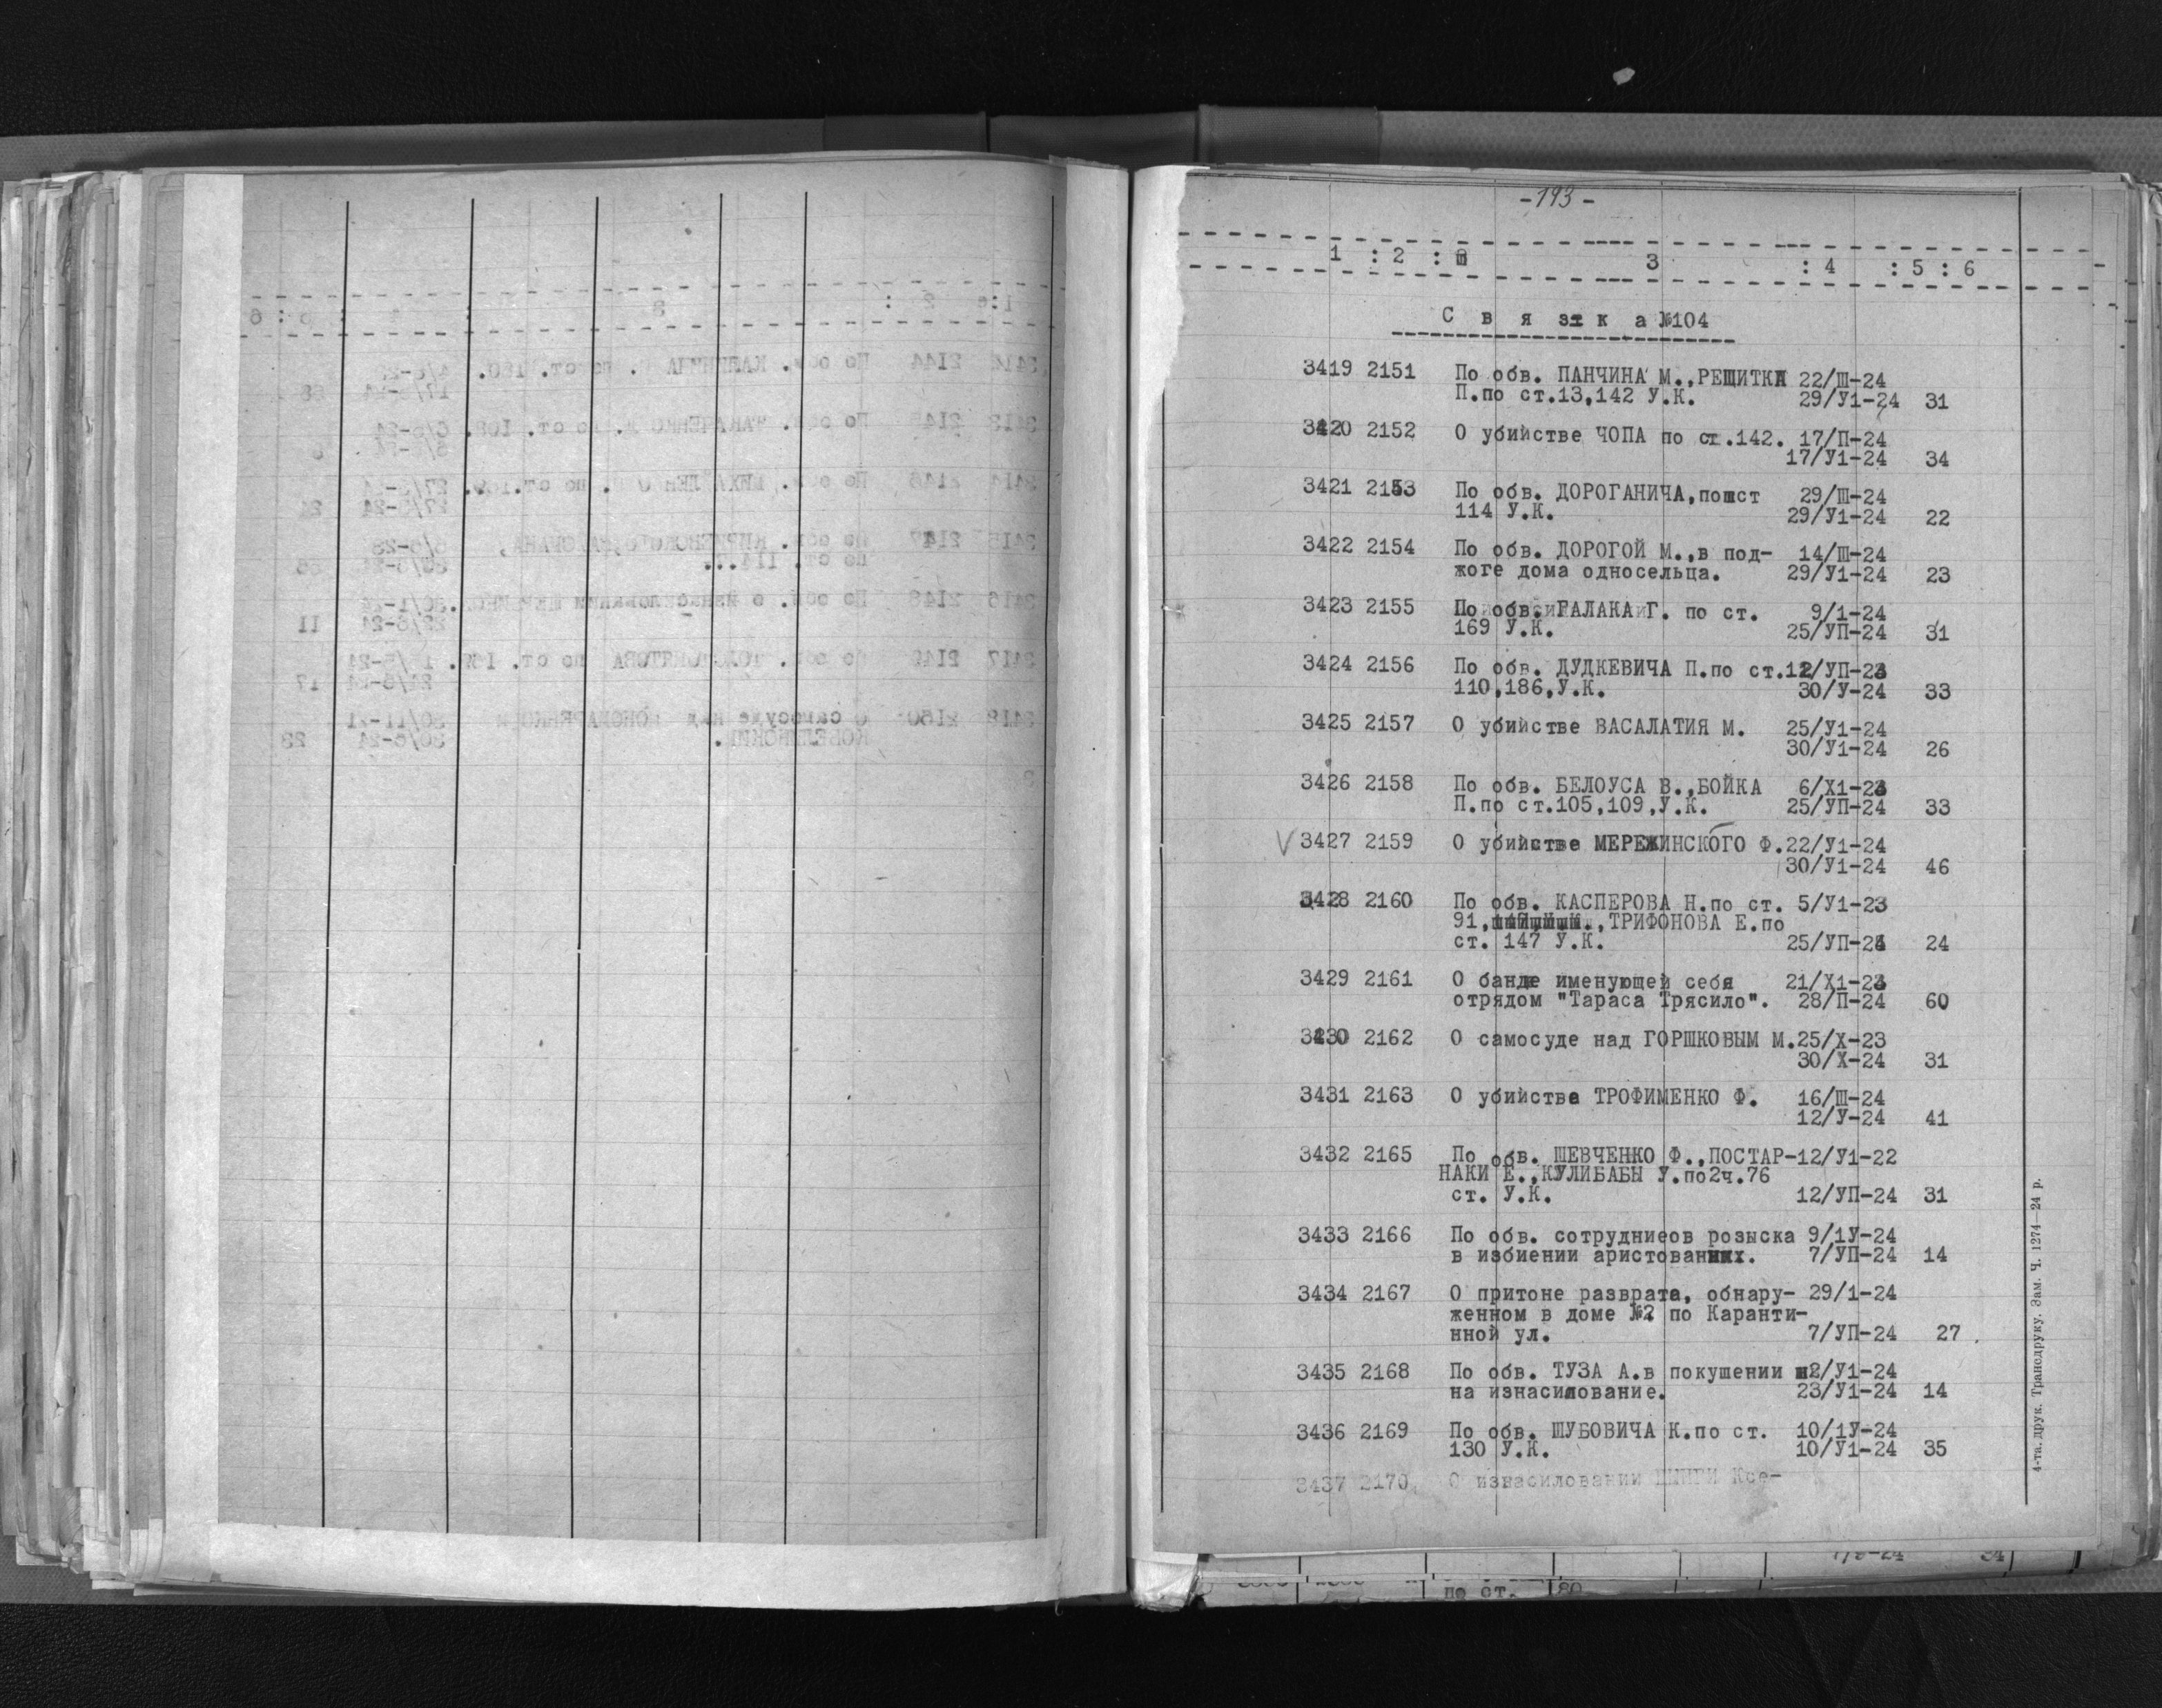 -193-
1 : 2 : 3 : 4 : 5 : 6
С в я з к а №104
3419 2151 По обв. ПАНЧИНА М.,РЕЩИТКА 22/Ш-24
П.по ст.13,142 У.К. 29/У1-24 31
3420 2152 О убийстве ЧОПА по ст.142. 17/П-24
17/У1-24 34
3421 2153 По обв. ДОРОГАНИЧА,по ст 29/Ш-24
114 У.К. 29/У1-24 22
3422 2154 По обв. ДОРОГОЙ М.,в под- 14/Ш-24
жоге дома односельца. 29/У1-24 23
3423 2155 По обв. ГАЛАКА Г. по ст. 9/1-24
169 У.К. 25/УП-24 31
3424 2156 По обв. ДУДКЕВИЧА П.по ст.12/УП-23
110,186,У.К. 30/У-24 33
3425 2157 О убийстве ВАСАЛАТИЯ М. 25/У1-24
30/У1-24 26
3426 2158 По обв. БЕЛОУСА В.,БОЙКА 6/Х1-23
П.по ст.105,109,У.К. 25/УП-24 33
V 3427 2159 О убийстве МЕРЕЖИНСКОГО Ф.22/У1-24
30/У1-24 46
3428 2160 По обв. КАСПЕРОВА Н.по ст. 5/У1-23
91, ,ТРИФОНОВА Е.по
ст. 147 У.К. 25/УП-24 24
3429 2161 О банде именующей себя 21/Х1-23
отрядом "Тараса Трясило". 28/П-24 60
3430 2162 О самосуде над ГОРШКОВЫМ М.25/Х-23
30/Х-24 31
3431 2163 О убийстве ТРОФИМЕНКО Ф. 16/Ш-24
12/У-24 41
3432 2165 По обв. ШЕВЧЕНКО Ф.,ПОСТАР-12/У1-22
НАКИ Е.,КУЛИБАБЫ У.по2ч.76
ст. У.К. 12/УП-24 31
3433 2166 По обв. сотрудниеов розыска 9/1У-24
в избиении аристованних. 7/УП-24 14
3434 2167 О притоне разврата, обнару- 29/1-24
женном в доме №2 по Каранти-
нной ул. 7/УП-24 27
3435 2168 По обв. ТУЗА А.в покушении 2/У1-24
на изнасилование. 23/У1-24 14
3436 2169 По обв. ШУБОВИЧА К.по ст. 10/1У-24
130 У.К. 10/У1-24 35
3437 2170 О изнасиловании Ксе-
4-та. друк. Трансдруку. Зам. Ч. 1274—24 р.
7/6-24 34
по ст. 80